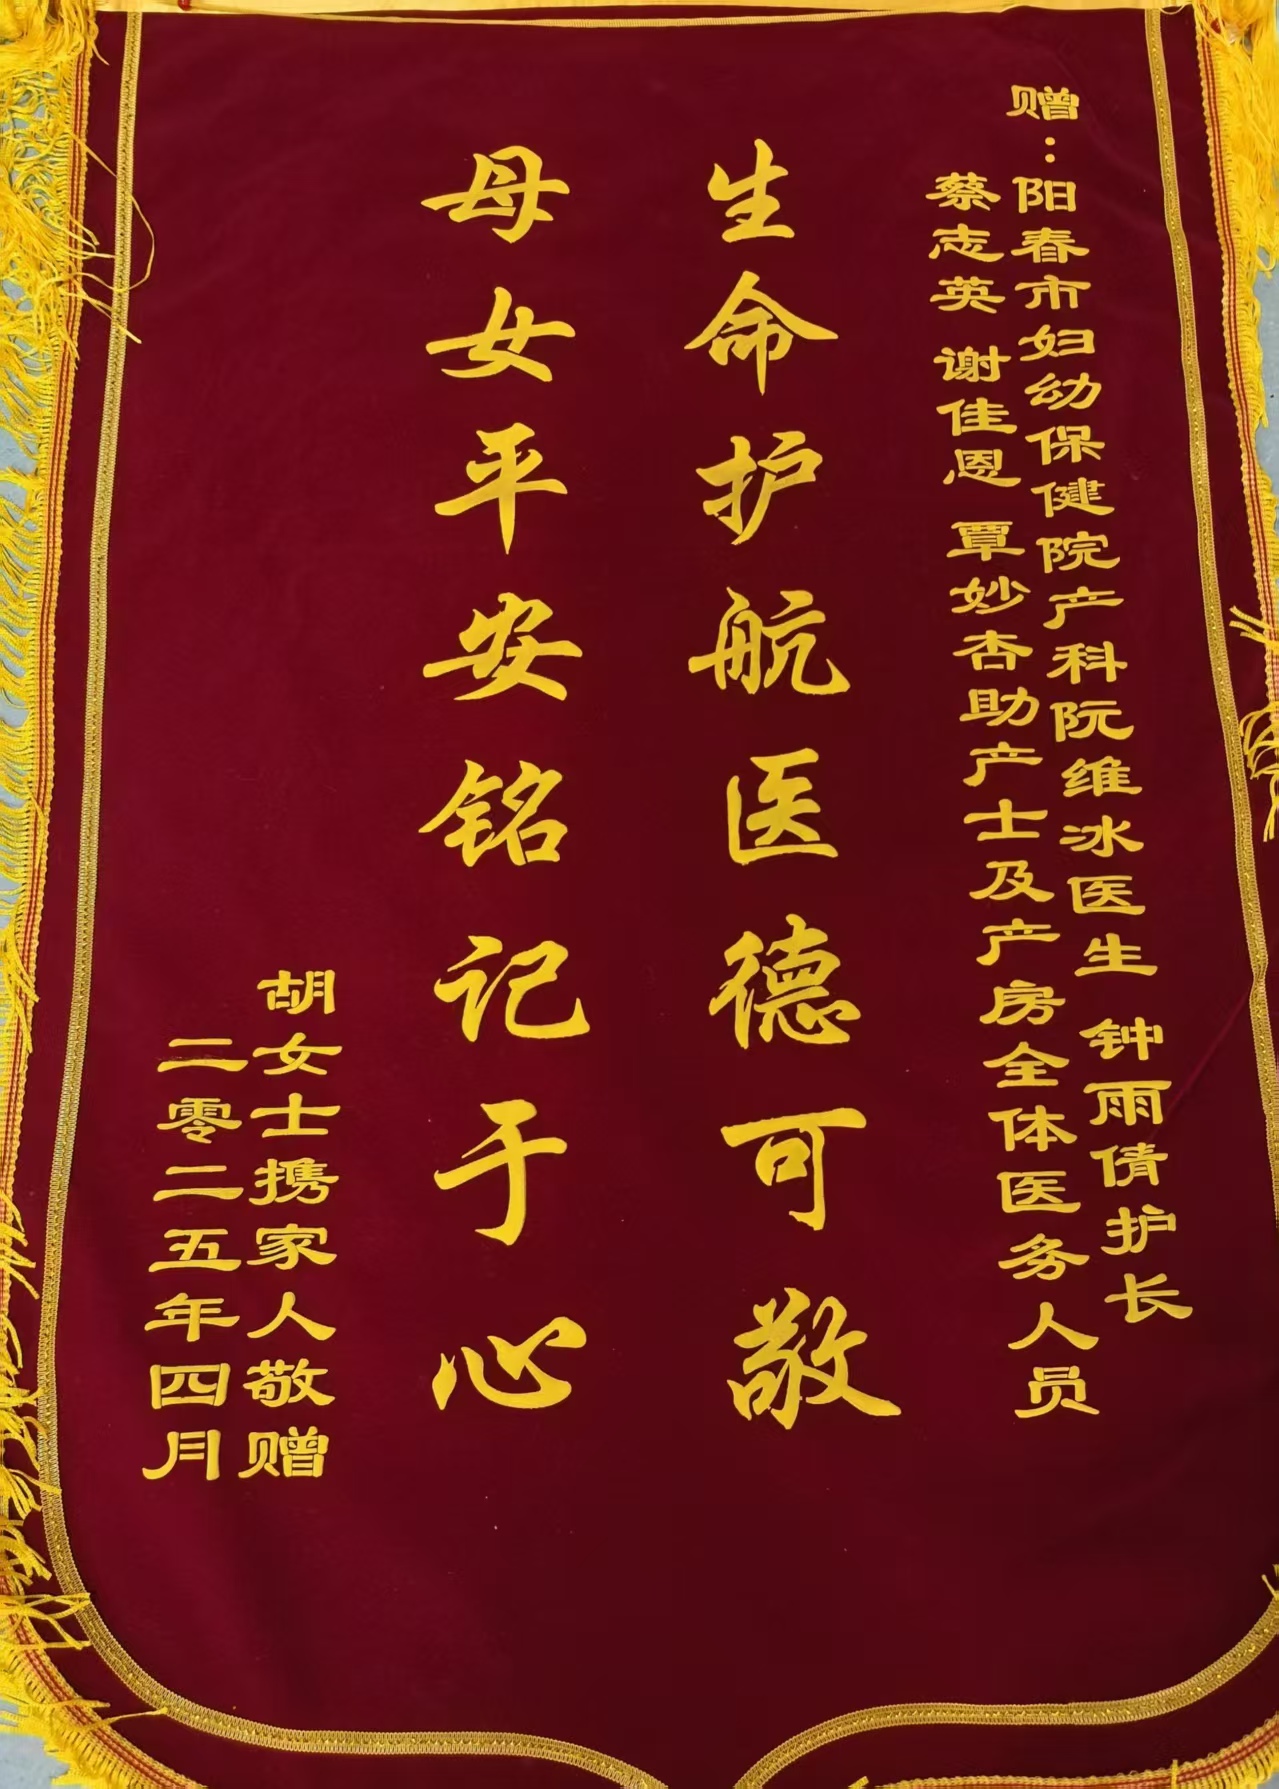 赠：阳春市妇幼保健院产科阮维冰医生 钟雨倩护长
蔡志英 谢佳恩 覃妙杏助产士及产房全体医务人员
生命护航医德可敬
母女平安铭记于心
胡女士携家人敬赠
二零二五年四月